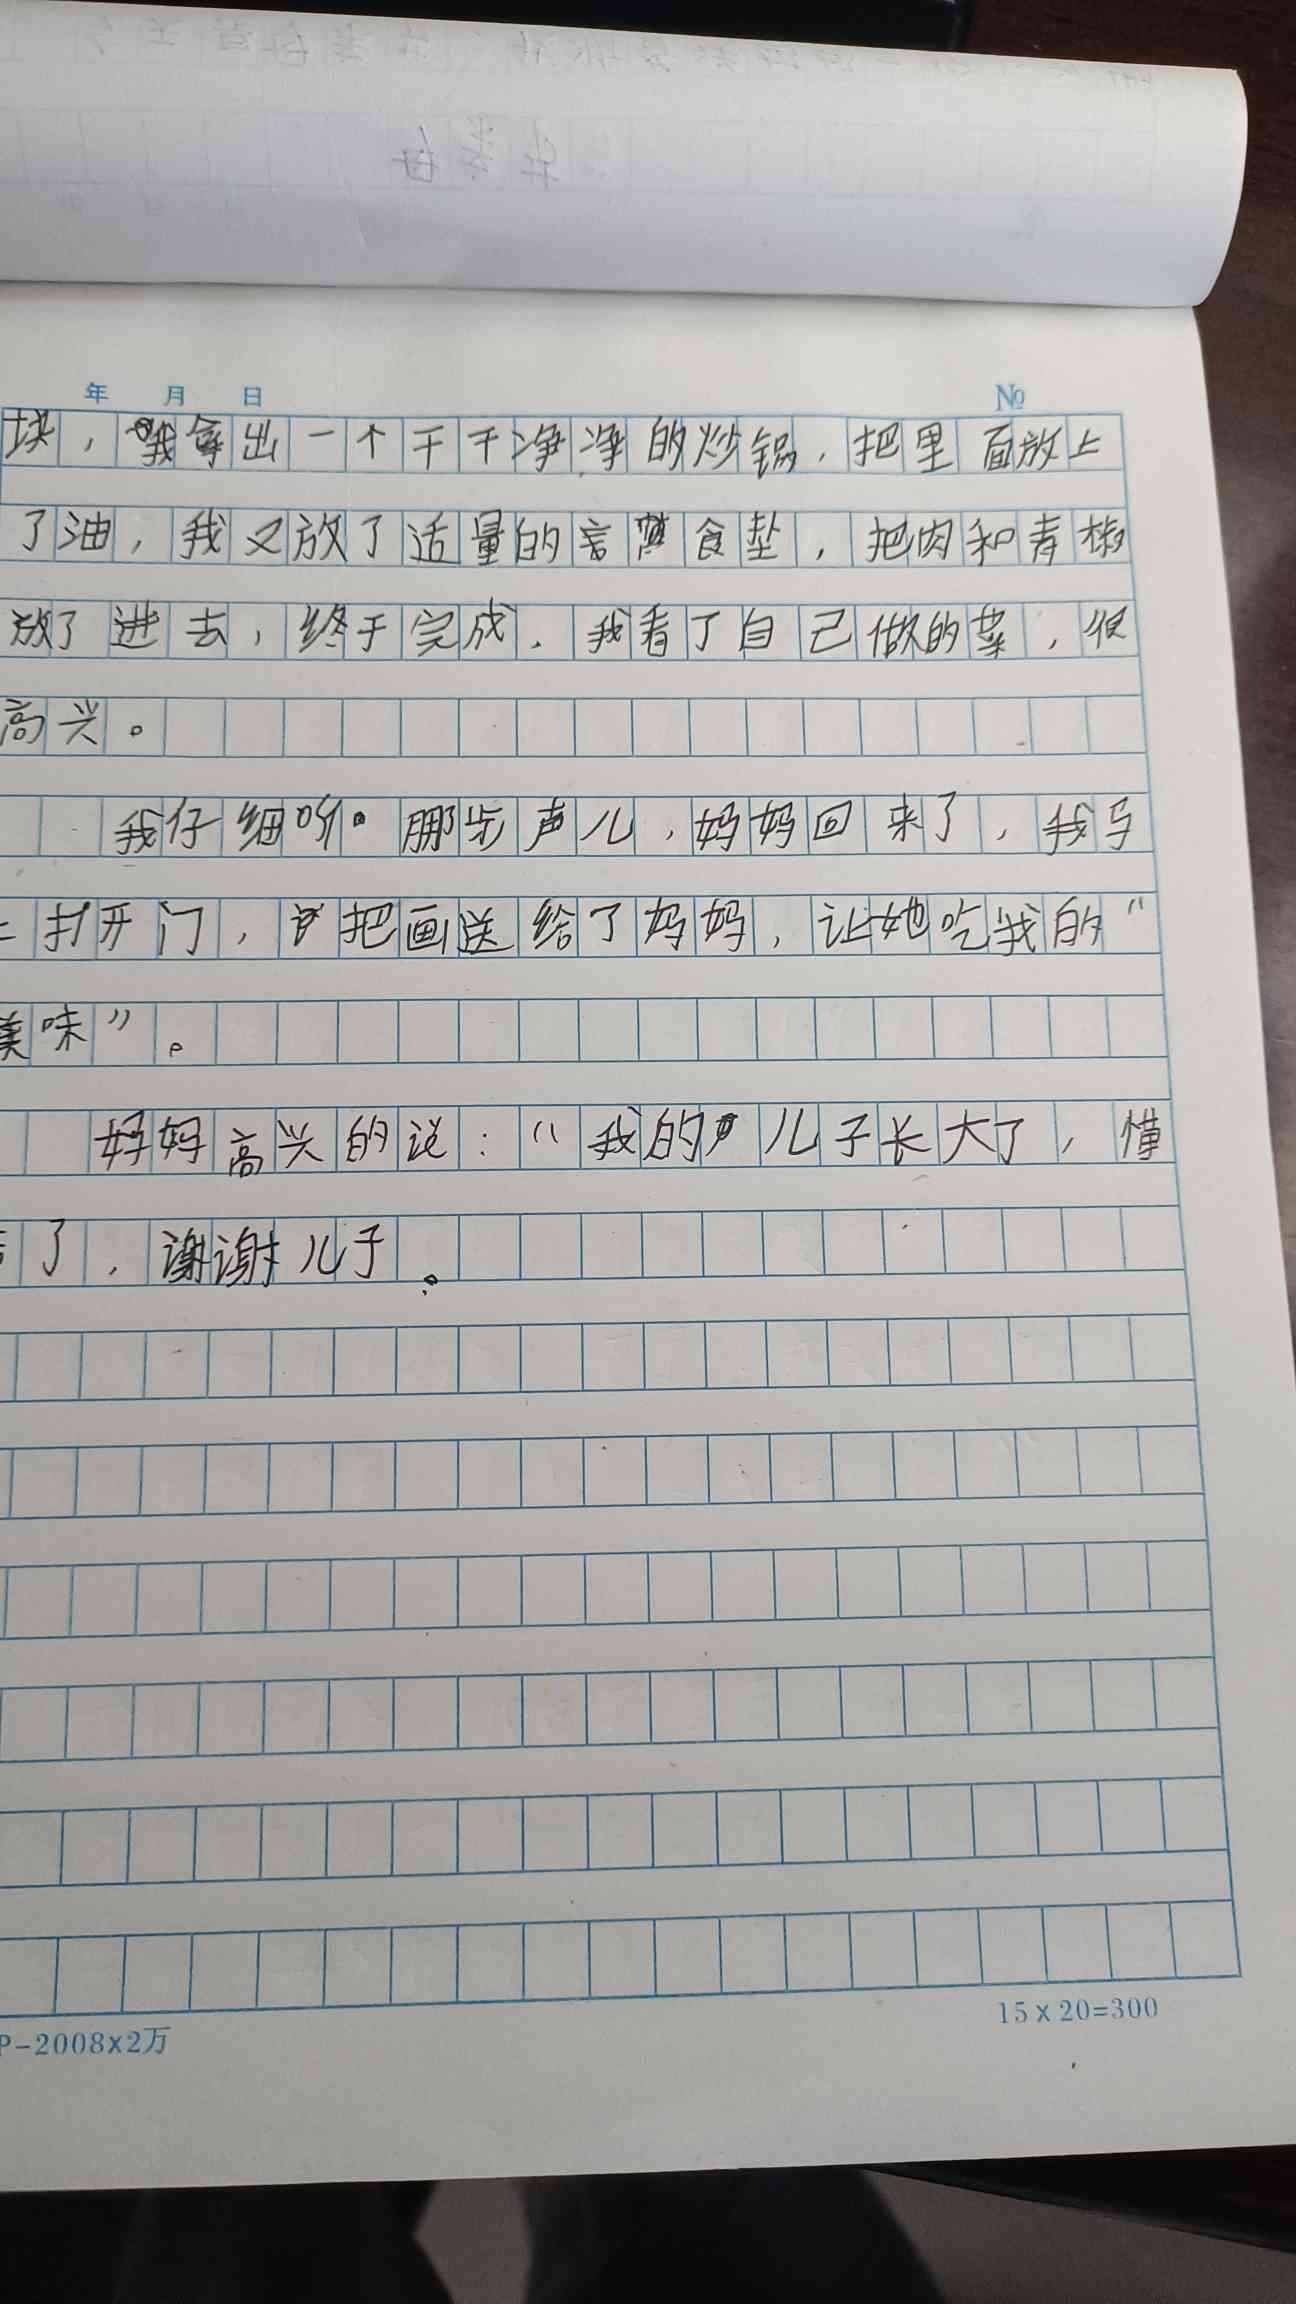 年 月 日 №
块，我拿出一个干干净净的炒锅，把里面放上
了油，我又放了适量的言食盐，把肉和青椒
放了进去，终于完成，我看了自己做的菜，很
高兴。
我仔细听。那步声儿，妈妈回来了，我马
上打开门，把画送给了妈妈，让她吃我的“
美味”。
妈妈高兴的说：“我的儿子长大了，懂
了，谢谢儿子。
P-2008×2万
15×20=300